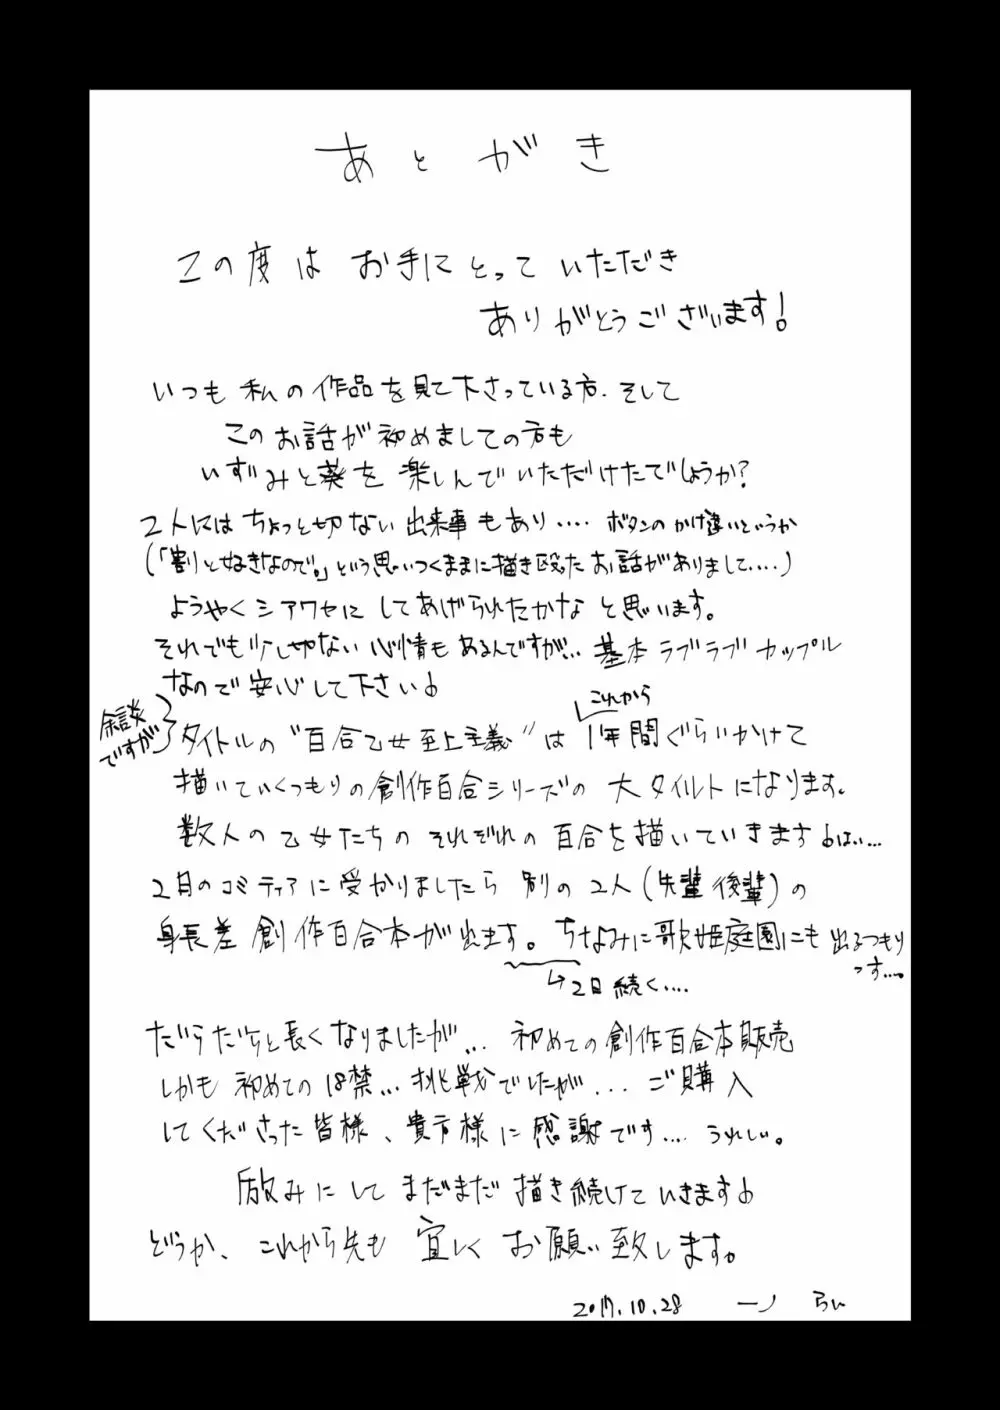 あとがき
この度は お手にとって いただき
ありがとうございます!
いつも 私の 作品を見て下さっている方、そして
このお話が初めましての方も
いずみと葵を 楽しんでいただけたでしょうか?
2人には ちょっと切ない 出来事もあり.... ボタンの かけ違いというか
(「割と好きなので。」という思いつくままに描き殴ったお話がありまして....)
ようやく シアワセに してあげられたかな と思います。
それでも少し切ない 心情も あるんですが... 基本ラブラブカップル
なので安心して下さい♪
余談ですが
これから
タイトルの "百合乙女至上主義" は 1年間ぐらいかけて
描いていくつもりの創作百合シリーズの 大タイルトになります。
数人の 乙女たちの それぞれの 百合を描いていきます♪はい...
2月のコミティアに受かりましたら 別の 2人(先輩後輩)の
身長差 創作百合本が出ます。ちなみに歌姫庭園にも 出るつもり
っす....。
→2日続く....
だらだらと長くなりましたが... 初めての創作百合本販売
しかも 初めての18禁... 挑戦でしたが... ご購入
してくださった皆様、貴方様に 感謝です.... うれしい。
励みにして まだまだ 描き続けていきます♪
どうか、これから先も 宜しく お願い致します。
2017.10.28 一ノ らい